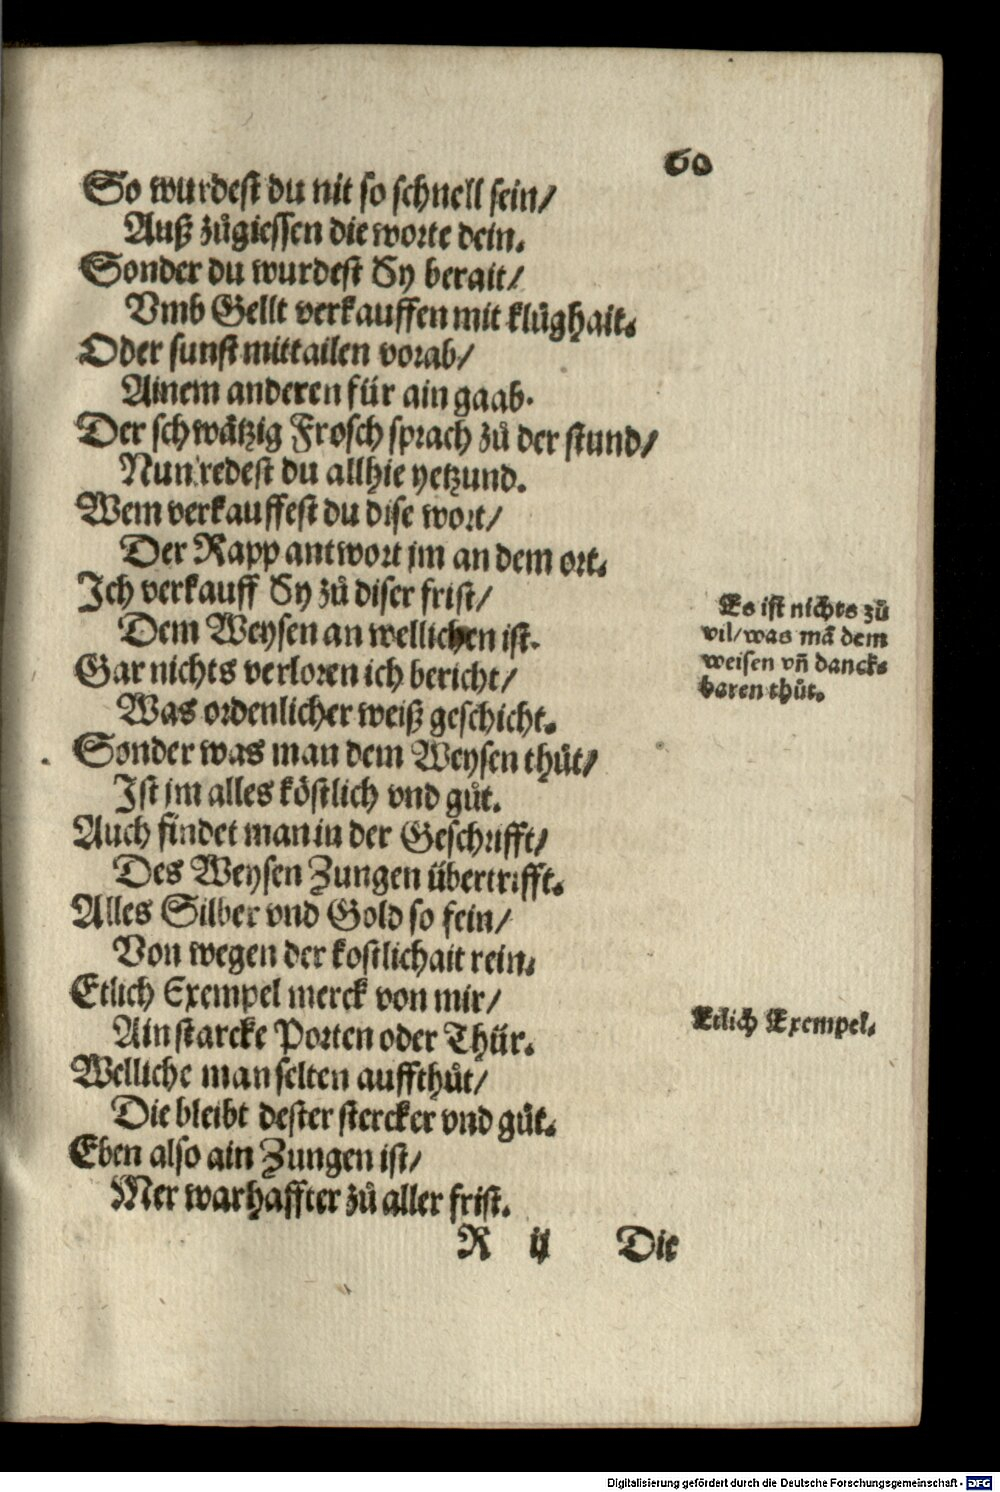 60
So wurdest du nit so schnell sein/
Auß zůgiessen die worte dein.
Sonder du wurdest Sy berait/
Vmb Gellt verkauffen mit klůghait.
Oder sunst mittailen vorab/
Ainem anderen für ain gaab.
Der schwätzig Frosch sprach zů der stund/
Nun redest du allhie yetzund.
Wem verkauffest du dise wort/
Der Rapp antwort jm an dem ort.
Ich verkauff Sy zů diser frist/
Dem Weysen an wellichen ist.
Gar nichts verloren ich bericht/
Was ordenlicher weiß geschicht.
Sonder was man dem Weysen thůt/
Ist jm alles köstlich vnd gůt.
Auch findet man in der Geschrifft/
Des Weysen Zungen übertrifft.
Alles Silber vnd Gold so fein/
Von wegen der kostlichait rein.
Etlich Exempel merck von mir/
Ain starcke Porten oder Thür.
Welliche man selten auffthůt/
Die bleibt dester stercker vnd gůt.
Eben also ain Zungen ist/
Mer warhaffter zů aller frist.
R ij Die
Es ist nichts zů
vil/was mā dem
weisen vn̄ danck-
baren thůt.
Etlich Exempel.
Digitalisierung gefördert durch die Deutsche Forschungsgemeinschaft - DFG